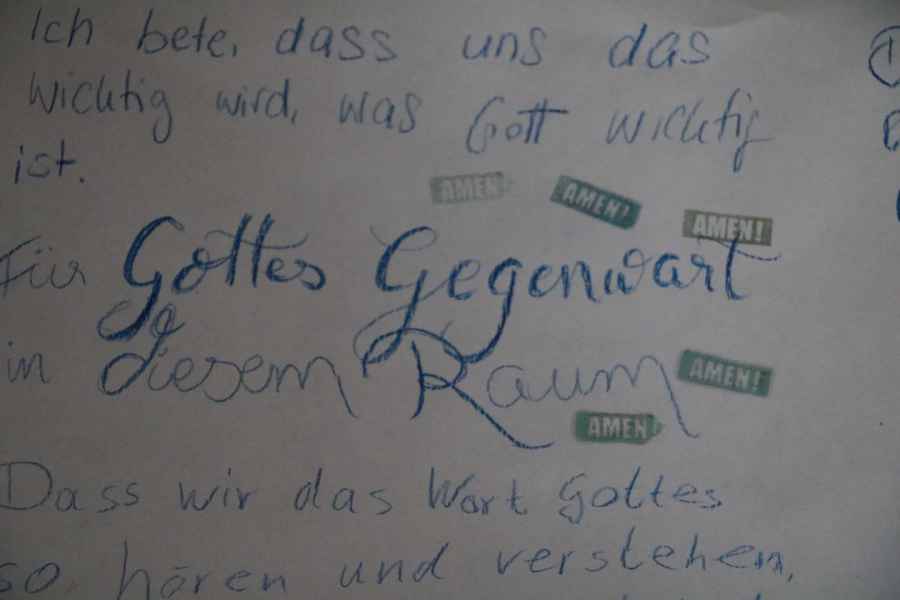 Ich bete, dass uns das
wichtig wird, was Gott wichtig
ist.
AMEN! AMEN! AMEN!
Für Gottes Gegenwart
in diesem Raum AMEN!
AMEN!
Dass wir das Wort Gottes
so hören und verstehen,